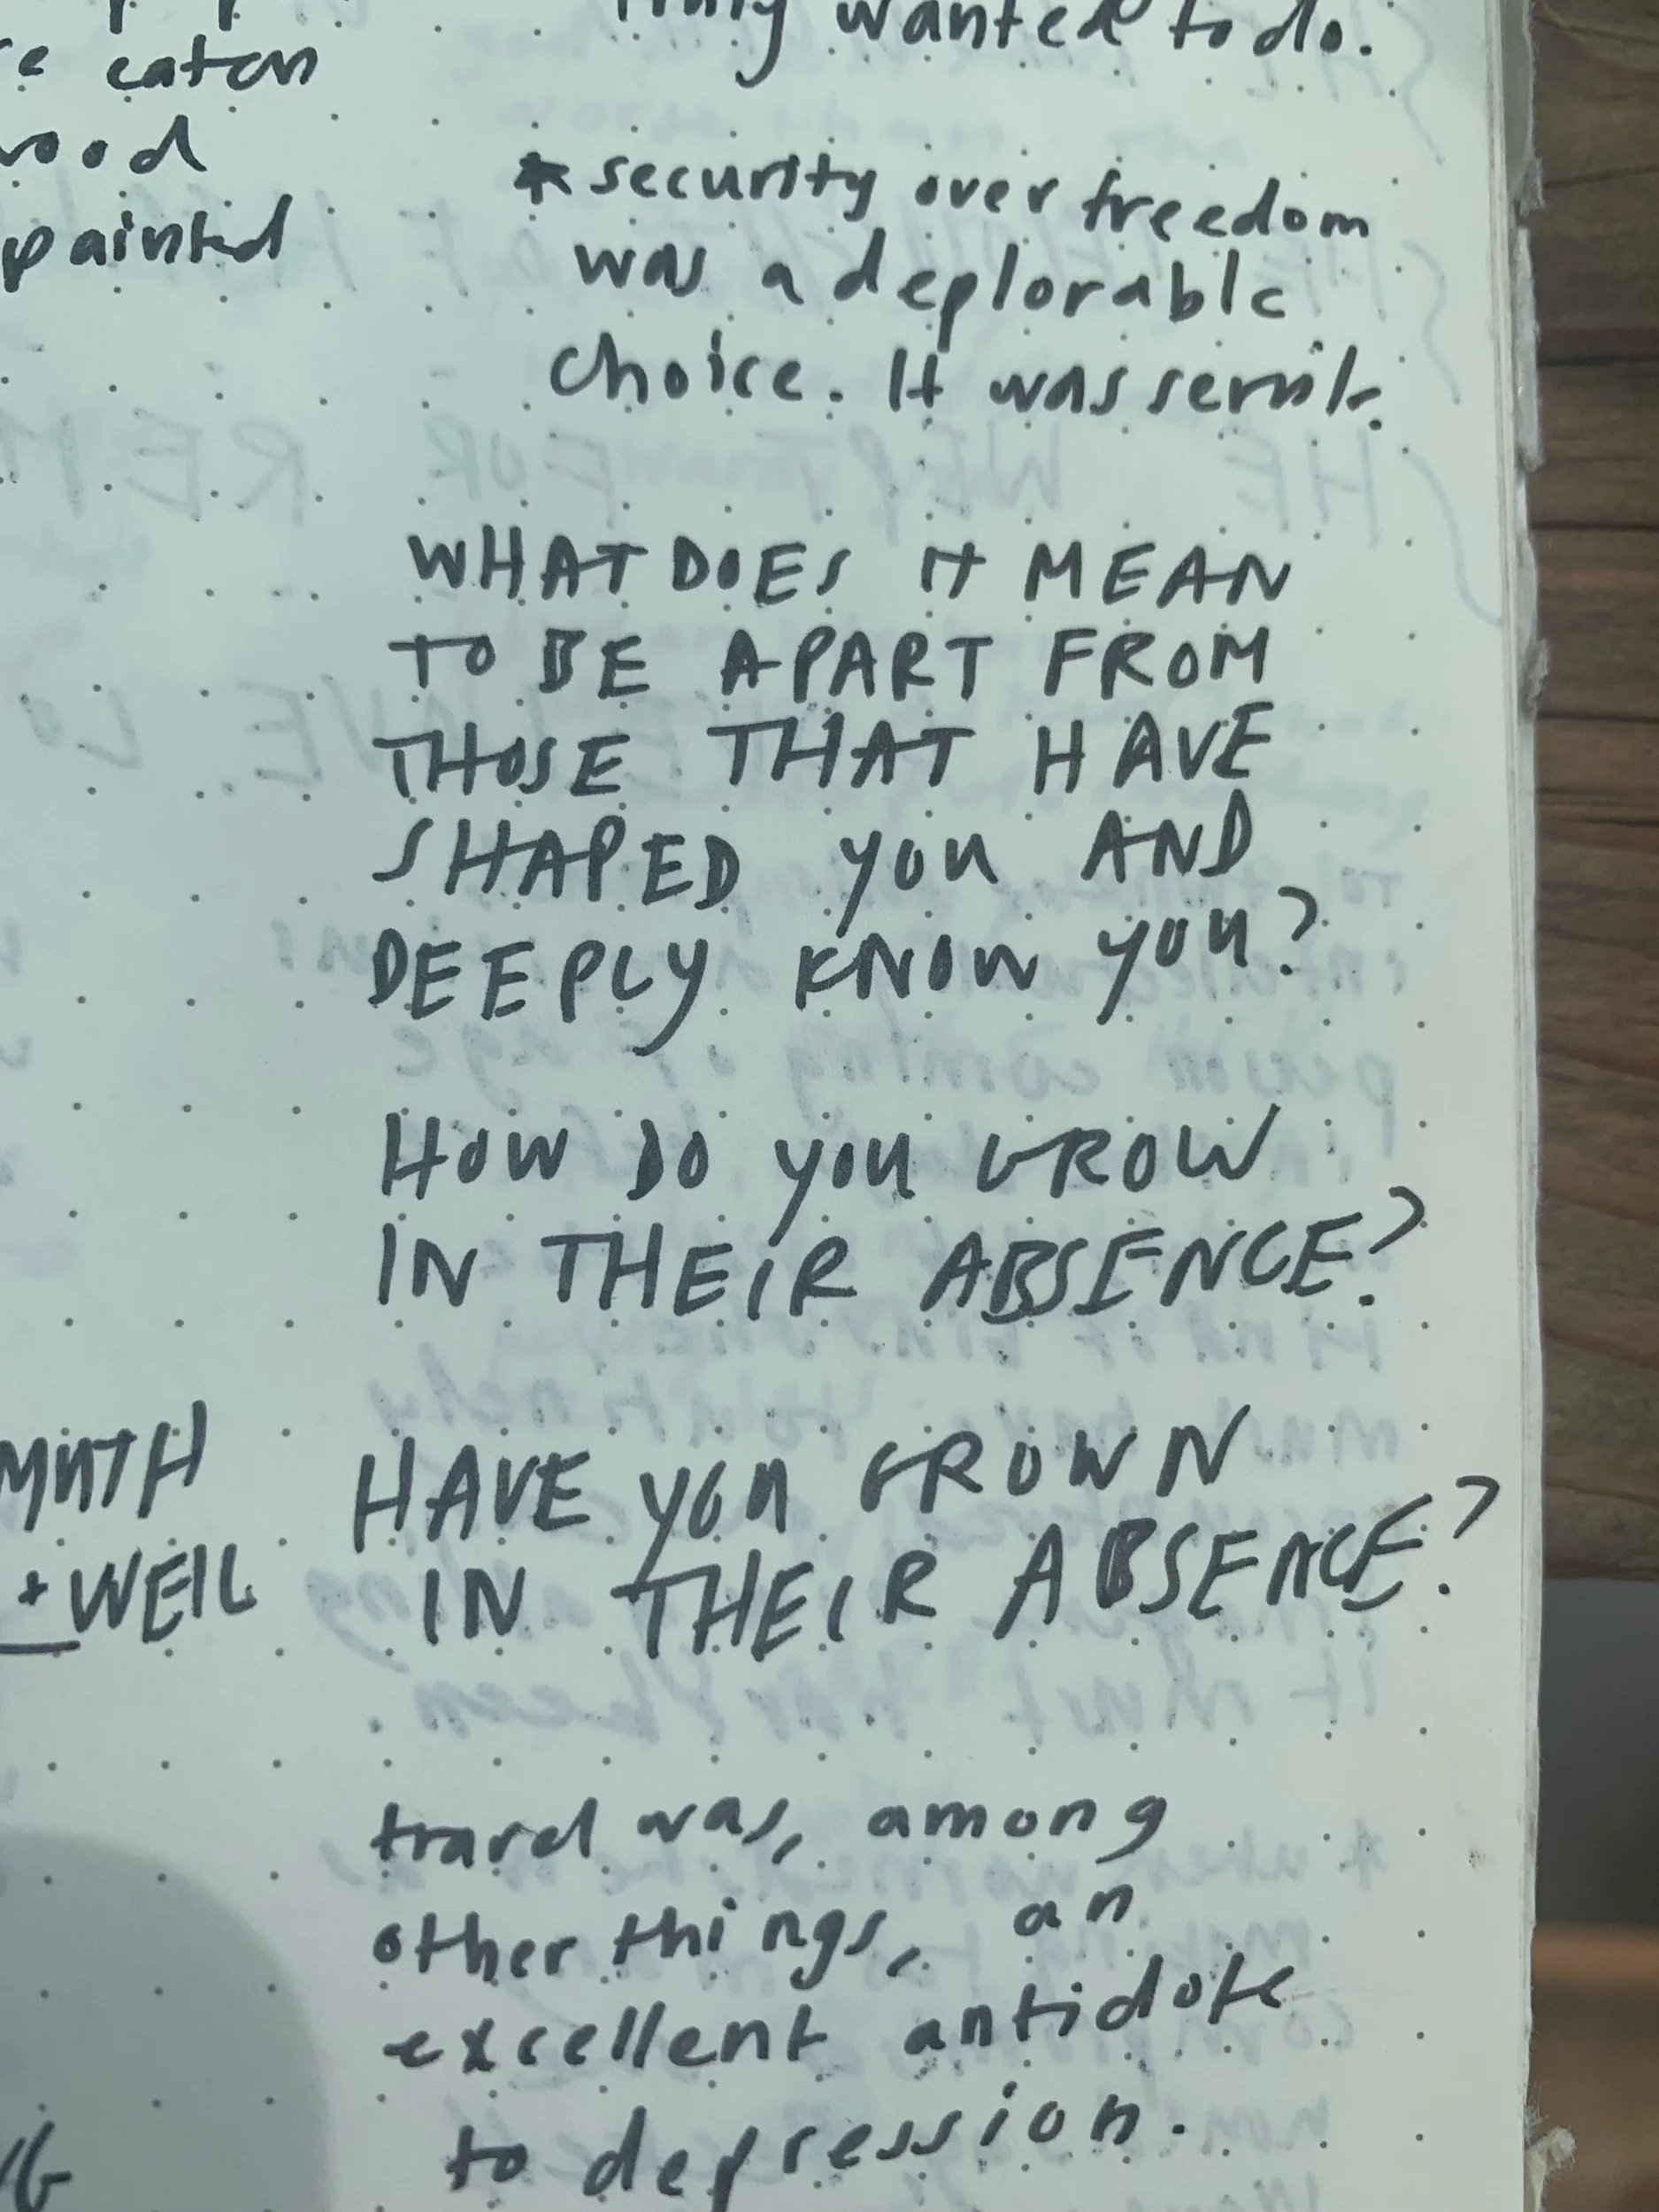 eaten
painted
wanted to do.
* security over freedom
was a deplorable
choice. It was servile.
WHAT DOES IT MEAN
TO BE APART FROM
THOSE THAT HAVE
SHAPED YOU AND
DEEPLY KNOW YOU?
HOW DO YOU GROW
IN THEIR ABSENCE?
HAVE YOU GROWN
IN THEIR ABSENCE?
+ WEIL
travel was, among
other things, an
excellent antidote
to depression.